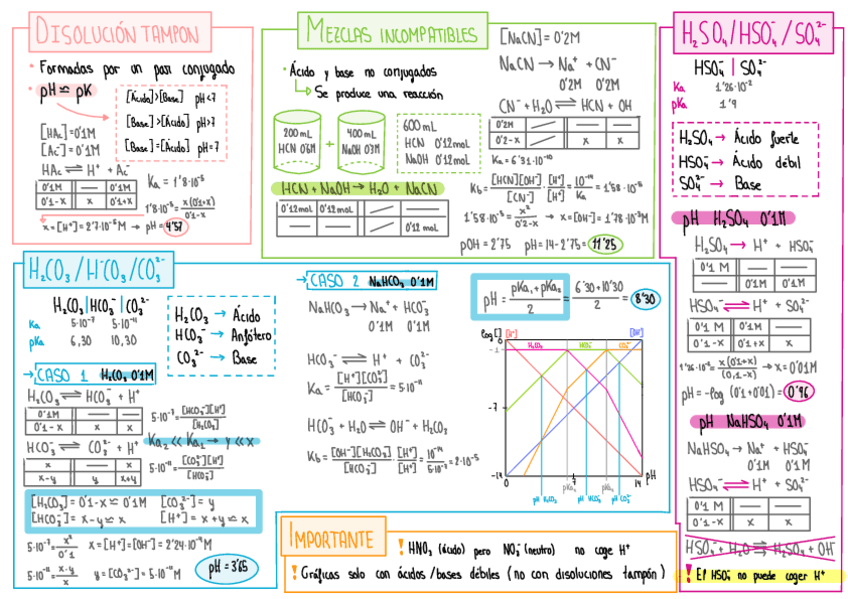 DISOLUCIÓN TAMPON
· Formadas por un par conjugado
· pH ≃ pK
[Ácido]>[Base] pH<7
[Base]>[Ácido] pH>7
[Base]=[Ácido] pH=7
[HAc]=0'1M
[Ac⁻]=0'1M
HAc ⇌ H⁺ + Ac⁻
0'1M — 0'1M
0'1-x x 0'1+x
Ka = 1'8·10⁻⁵
1'8·10⁻⁵ = x(0'1+x)/0'1-x
pH = 4'57
MEZCLAS INCOMPATIBLES
· Ácido y base no conjugados
↳ Se produce una reacción
200 mL
400 mL
NaOH 0'3M
+
600 mL
HCN 0'12mol
NaOH 0'12mol
HCN + NaOH → H₂O + NaCN
0'12mol 0'12mol
— — 0'12 mol
[NaCN] = 0'2M
NaCN → Na⁺ + CN⁻
0'2M 0'2M
CN⁻ + H₂O ⇌ HCN + OH
0'2M — —
0'2-x x x
Ka = 6'31·10⁻¹⁰
Kb = [HCN][OH⁻]/[CN⁻] · [H⁺]/[H⁺] = 10⁻¹⁴/Ka = 1'58·10⁻⁵
1'58·10⁻⁵ = x²/0'2-x → x = [OH⁻] = 1'78·10⁻³M
pOH = 2'75 pH = 14 - 2'75 = 11'25
H₂SO₄/HSO₄⁻/SO₄²⁻
HSO₄⁻ | SO₄²⁻
Ka 1'26·10⁻²
pKa 1'9
H₂SO₄ → Ácido fuerte
HSO₄⁻ → Ácido débil
SO₄²⁻ → Base
pH H₂SO₄ 0'1M
H₂SO₄ → H⁺ + HSO₄⁻
0'1 M — —
— 0'1M 0'1M
HSO₄⁻ ⇌ H⁺ + SO₄²⁻
0'1 M 0'1M —
0'1-x 0'1+x x
1'26·10⁻² = x(0'1+x)/(0,1-x) → x = 0'01M
pH = -log (0'1+0'01) = 0'96
pH NaHSO₄ 0'1M
NaHSO₄ → Na⁺ + HSO₄⁻
0'1M 0'1M
HSO₄⁻ ⇌ H⁺ + SO₄²⁻
0'1M — —
0'1-x x x
HSO₄⁻ + H₂O ⇌ H₂SO₄ + OH⁻
! El HSO₄⁻ no puede coger H⁺
H₂CO₃/H⁻CO₃/CO₃²⁻
H₂CO₃ | HCO₃⁻ | CO₃²⁻
Ka 5·10⁻⁷ 5·10⁻¹¹
pKa 6,30 10,30
H₂CO₃ → Ácido
HCO₃⁻ → Anfótero
CO₃²⁻ → Base
→ CASO 1 H₂CO₃ 0'1M
H₂CO₃ ⇌ HCO₃⁻ + H⁺
0'1M — —
0'1-x x x
5·10⁻⁷ = [HCO₃⁻][H⁺]/[H₂CO₃]
HCO₃⁻ ⇌ CO₃²⁻ + H⁺
Ka₂ << Ka₁ → y << x
x — x
x-y y x+y
5·10⁻¹¹ = [CO₃²⁻][H⁺]/[HCO₃⁻]
[H₂CO₃] = 0'1-x ≃ 0'1M [CO₃²⁻] = y
[HCO₃⁻] = x-y ≃ x [H⁺] = x+y ≃ x
5·10⁻⁷ = x²/0'1 x = [H⁺] = [OH⁻] = 2'24·10⁻⁴M
5·10⁻¹¹ = x·y/x y = [CO₃²⁻] = 5·10⁻¹¹M
pH = 3'65
→ CASO 2 NaHCO₃ 0'1M
NaHCO₃ → Na⁺ + HCO₃⁻
0'1M 0'1M
HCO₃⁻ ⇌ H⁺ + CO₃²⁻
Ka = [H⁺][CO₃²⁻]/[HCO₃⁻] = 5·10⁻¹¹
HCO₃⁻ + H₂O ⇌ OH⁻ + H₂CO₃
Kb = [OH⁻][H₂CO₃]/[HCO₃⁻] · [H⁺]/[H⁺] = 10⁻¹⁴/5·10⁻⁷ = 2·10⁻⁸
pH = pKa₁+pKa₂/2 = 6'30+10'30/2 = 8'30
log[] [H⁺] [OH⁻]
0
-1 H₂CO₃ HCO₃⁻ CO₃²⁻
-7
-14
7 14 pH
pKa₁ pKa₂
pH H₂CO₃ pH HCO₃⁻ pH CO₃²⁻
IMPORTANTE
! HNO₃ (ácido) pero NO₃⁻ (neutro) no coge H⁺
! Gráficas solo con ácidos/bases débiles (no con disoluciones tampón)